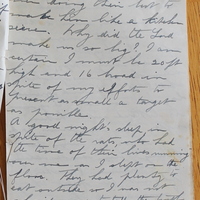 their best to
make them like a kitchen
sieve. Why did the Lord
make me so big? I am
certain I must be 20ft
high and 16 broad in
spite of my efforts to
present as small a target
as possible.
A good night's sleep in
spite of the rats, who had
the time of their lives running
over me as I slept on the
floor. They had plenty to
eat outside so I was not